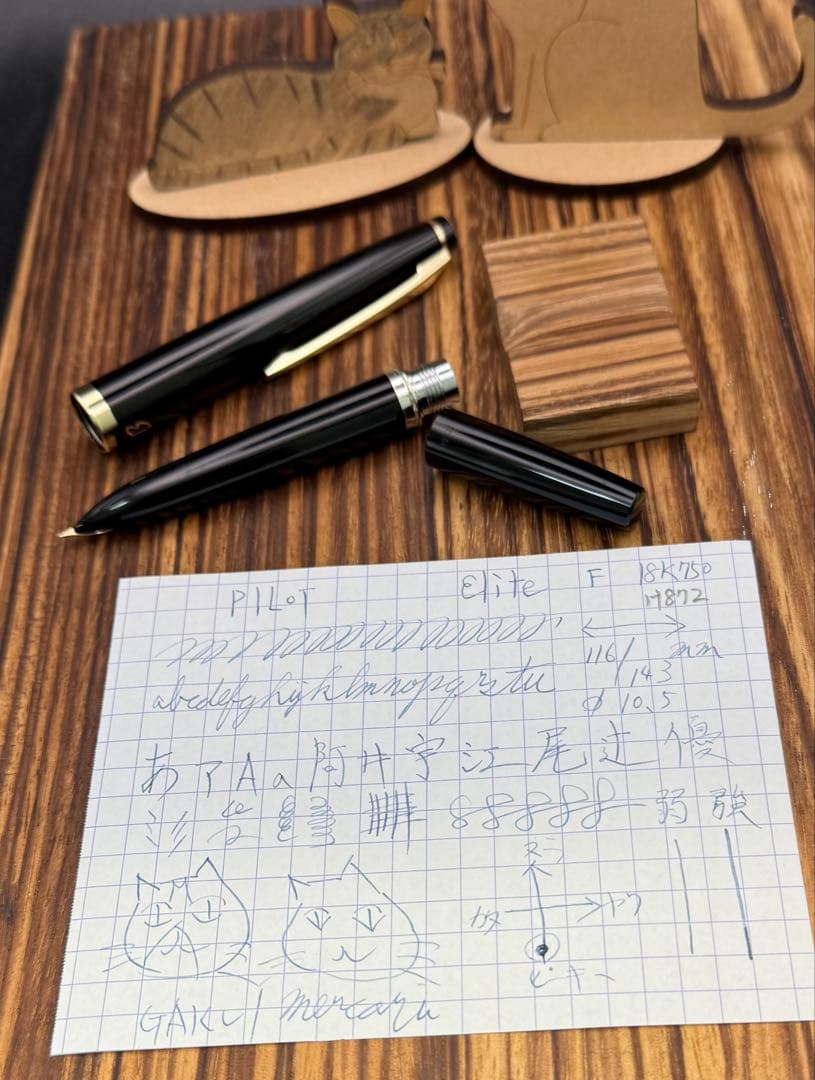 PILOT Elite F 18K750
H872
116/143 mm
φ 10.5
abcdefghijklmnopqrstu
あアAa阿井宇江尾辻優
弱 強
ヌラ
カタ ヤワ
GAKU/mercari